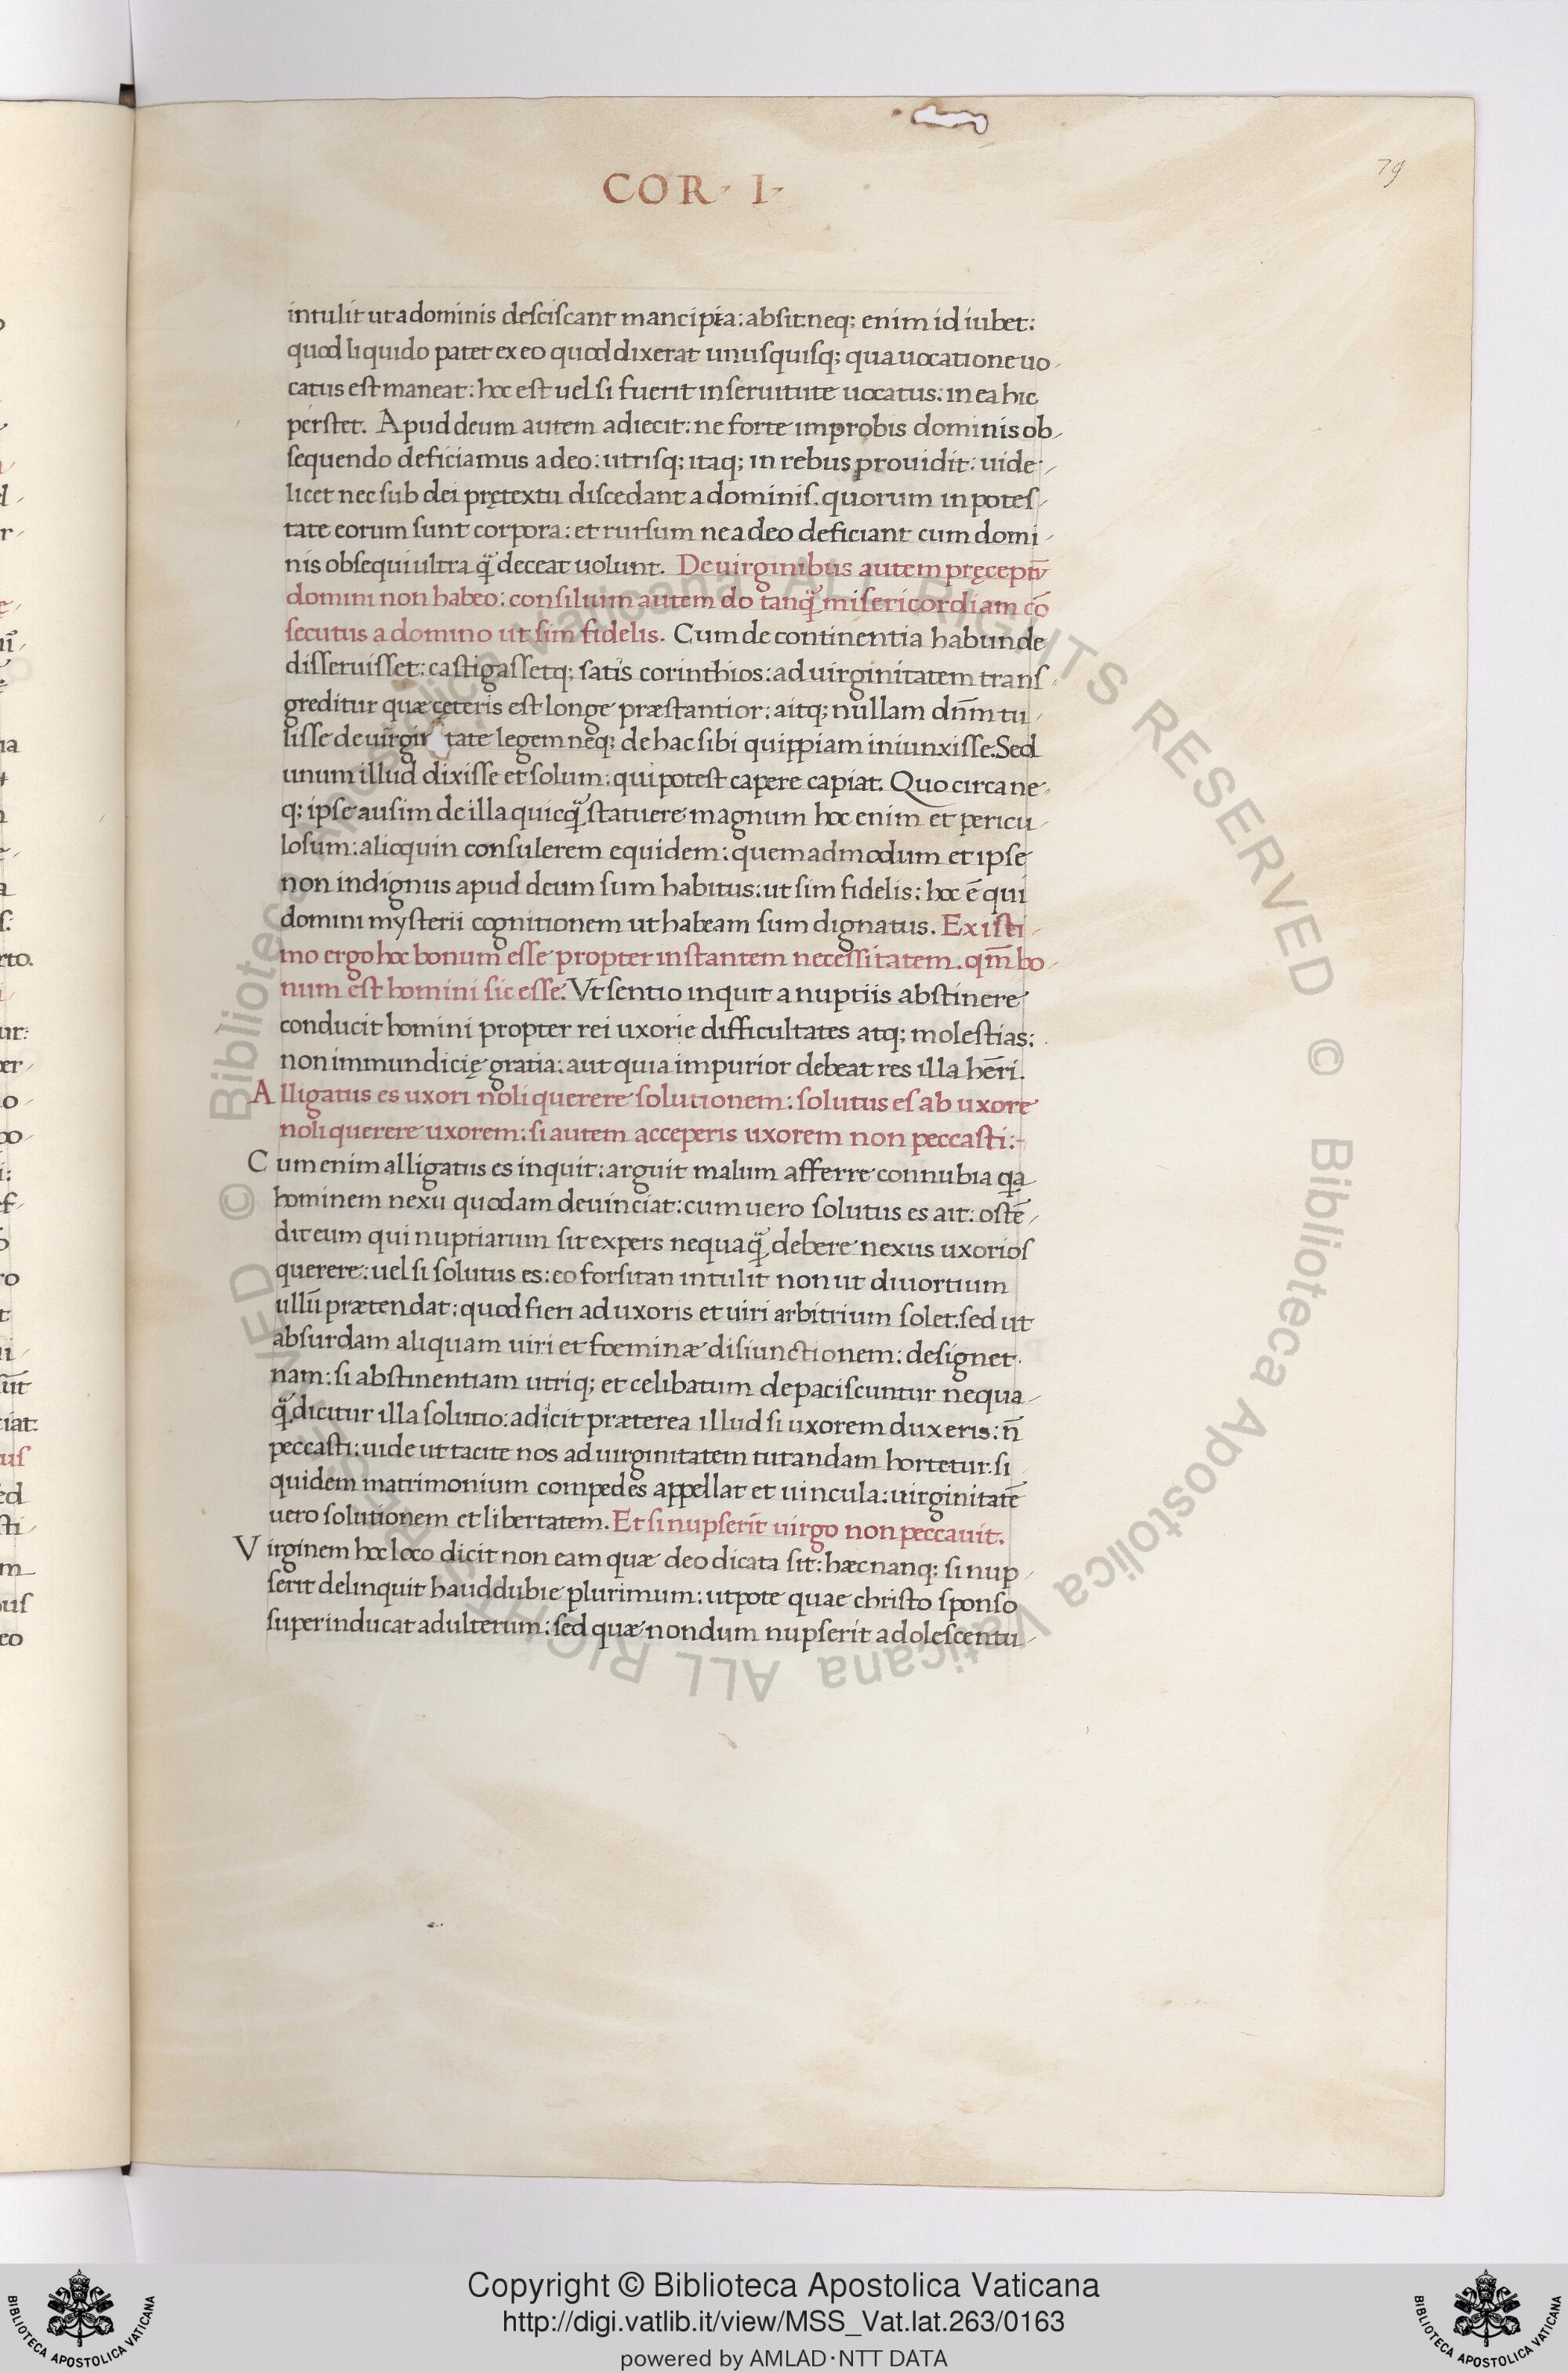 COR · I ·
79
intulit ut a dominis desciscant mancipia: absit. neq; enim id iubet:
quod liquido patet ex eo quod dixerat unusquisq; qua uocatione uo-
catus est maneat: hoc est uel si fuerit in seruitute uocatus: in ea hic
perstet. Apud deum autem adiecit: ne forte improbis dominis ob-
sequendo deficiamus a deo: utrisq; itaq; in rebus prouidit: uide-
licet nec sub dei prętextu discedant a dominis. quorum in potes-
tate eorum sunt corpora: et rursum ne a deo deficiant cum domi-
nis obsequi ultra q̃ deceat uolunt. De uirginibus autem pręceptū
domini non habeo: consilium autem do tanq̃ misericordiam cō
secutus a domino ut sim fidelis. Cum de continentia habunde
disseruisset: castigassetq; satis corinthios: ad uirginitatem trans-
greditur quæ cęteris est longe præstantior: aitq; nullam dn̄m tu-
lisse de uirgi tate legem neq; de hac sibi quippiam iniunxisse. Sed
unum illud dixisse et solum: qui potest capere capiat. Quo circa ne-
q; ipse ausim de illa quicq̃ statuere magnum hoc enim et pericu-
losum: alioquin consulerem equidem: quemadmodum et ipse
non indignus apud deum sum habitus: ut sim fidelis: hoc ē qui
domini mysterii cognitionem ut habeam sum dignatus. Existi-
mo ergo hoc bonum esse propter instantem necessitatem. qm̄ bo-
num est homini sic esse. Vt sentio inquit a nuptiis abstinere
conducit homini propter rei uxorie difficultates atq; molestias:
non immundicię gratia: aut quia impurior debeat res illa hēri.
Alligatus es uxori noli querere solutionem: solutus es ab uxore
noli querere uxorem: si autem acceperis uxorem non peccasti:-
Cum enim alligatus es inquit: arguit malum afferre connubia qa
hominem nexu quodam deuinciat: cum uero solutus es ait: ostē-
dit eum qui nuptiarum sit expers nequaq̃ debere nexus uxorios
querere: uel si solutus es: eo forsitan intulit non ut diuortium
ullū prætendat: quod fieri ad uxoris et uiri arbitrium solet. sed ut
absurdam aliquam uiri et fœminæ disiunctionem: designet.
nam: si abstinentiam utriq; et celibatum depaciscuntur nequa-
q̃ dicitur illa solutio: adicit præterea illud si uxorem duxeris: n̄
peccasti: uide ut tacite nos ad uirginitatem tutandam hortetur. si-
quidem matrimonium compedes appellat et uincula: uirginitatē
uero solutionem et libertatem. Et si nupserit uirgo non peccauit.
Virginem hoc loco dicit non eam quæ deo dicata sit: hæc nanq; si nup-
serit delinquit haud dubie plurimum: utpote quae christo sponso
superinducat adulterum: sed quæ nondum nupserit adolescentu-
© Biblioteca Apostolica Vaticana ALL RIGHTS RESERVED
© Biblioteca Apostolica Vaticana ALL RIGHTS RESERVED
Copyright © Biblioteca Apostolica Vaticana
http://digi.vatlib.it/view/MSS_Vat.lat.263/0163
powered by AMLAD·NTT DATA
BIBLIOTECA APOSTOLICA VATICANA
BIBLIOTECA APOSTOLICA VATICANA